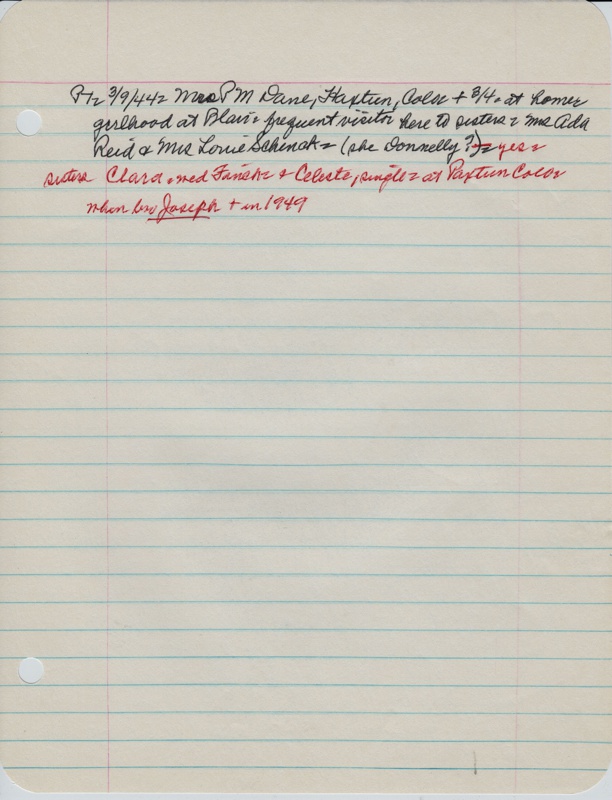 Ptz 3/9/44= Mrs P M Dane, Haxtun, Color + 3/4 = at home=
girlhood at Blair= frequent visitor here to sisters= Mrs Ada
Reid & Mrs Louie Schenck= (she Donnelly?)= yes=
sisters Clara, wed Fanske & Celeste, single= at Paxtun Color
when bro Joseph + in 1949